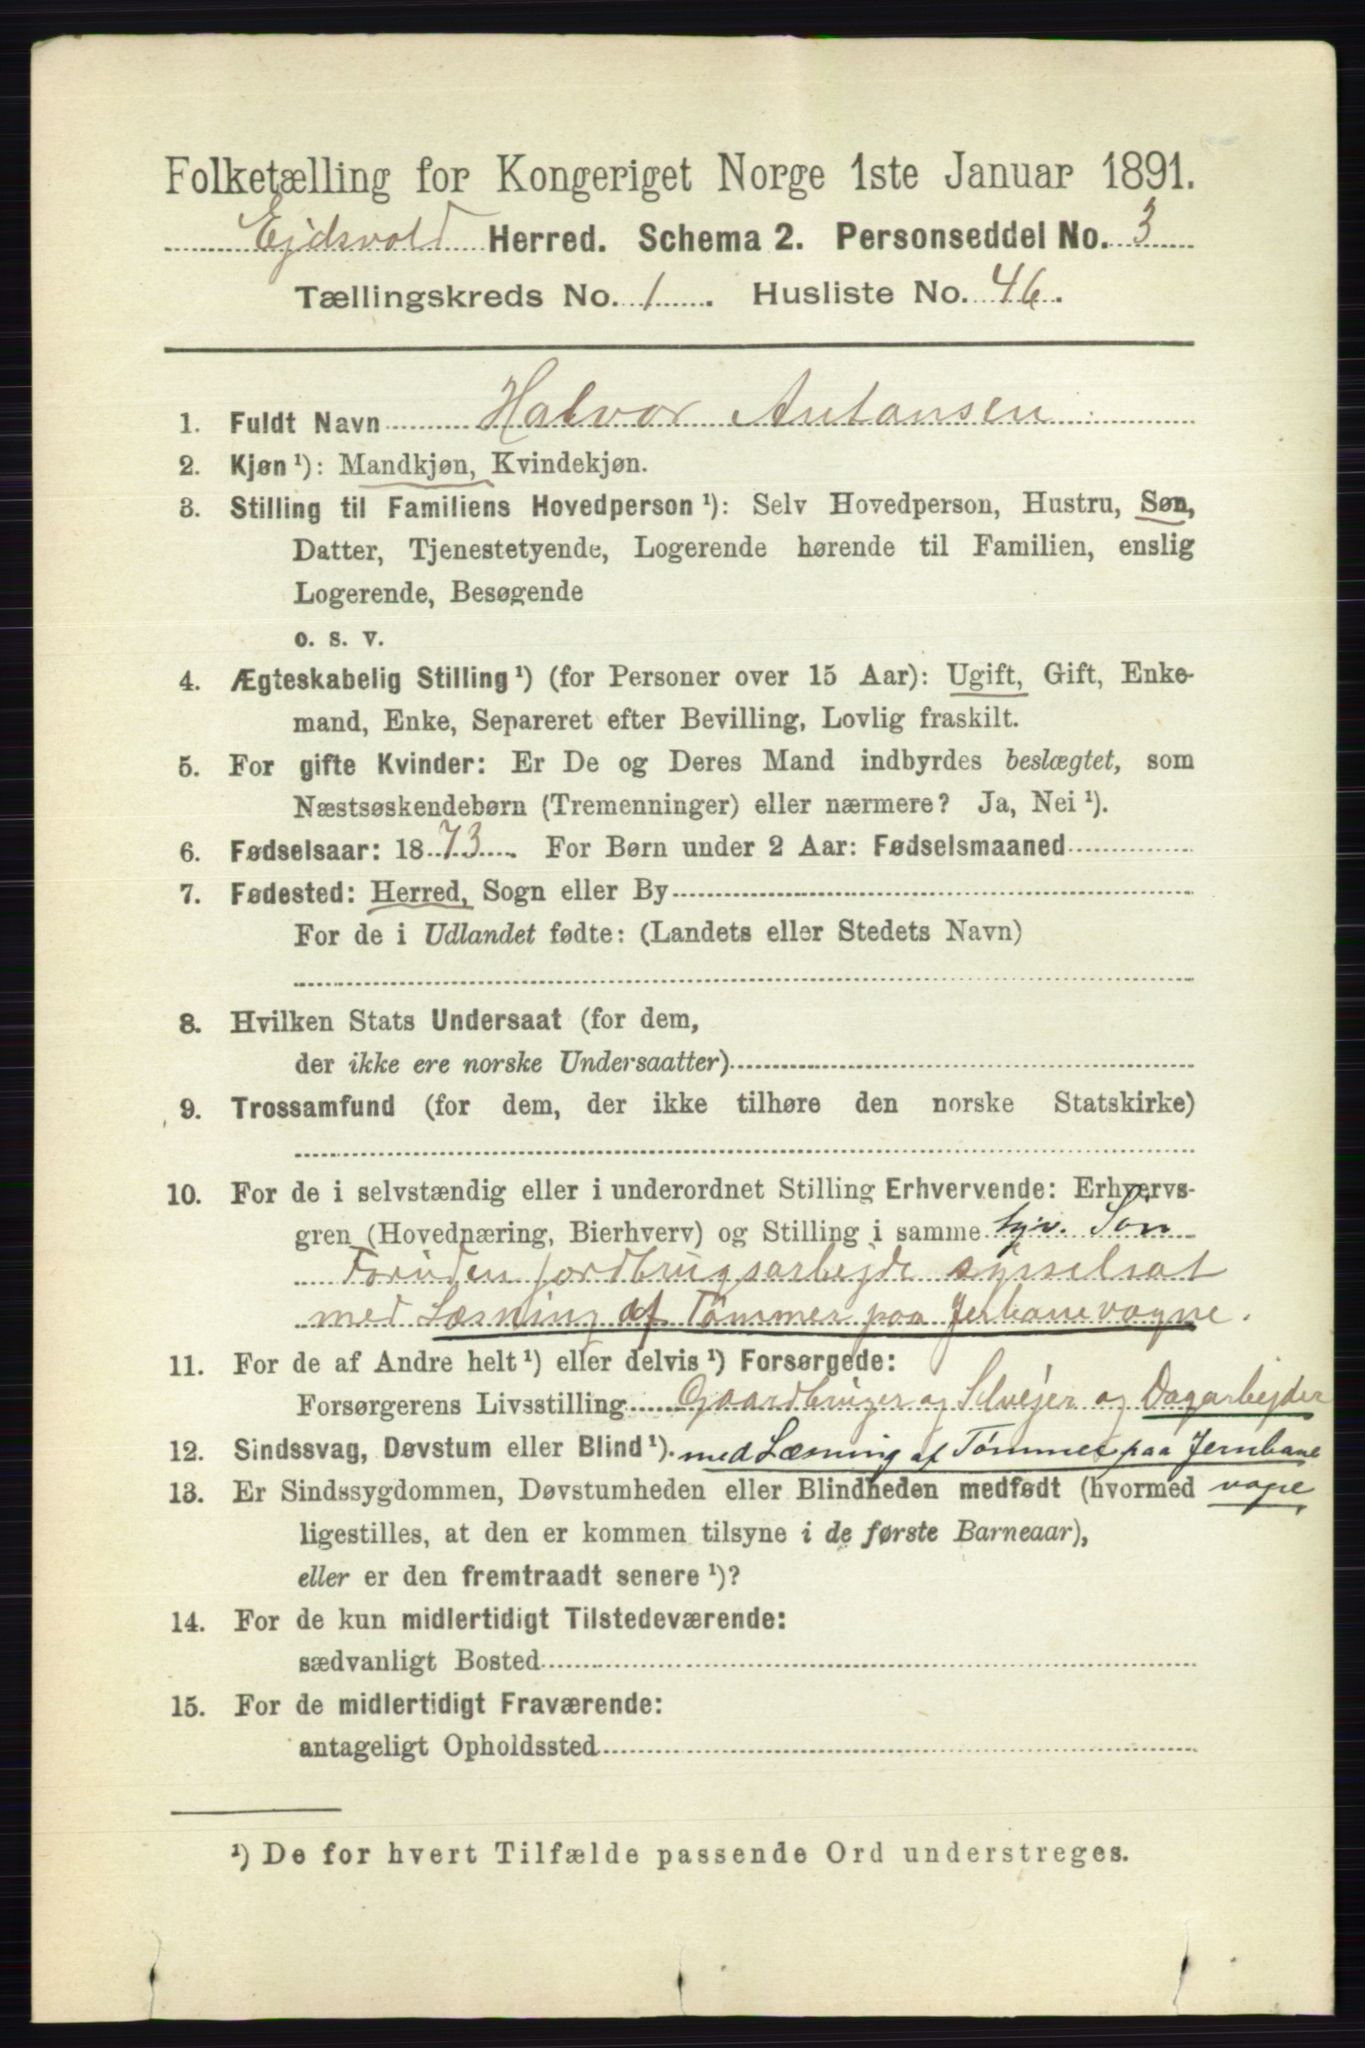 Folketælling for Kongeriget Norge 1ste Januar 1891.
Ejdsvold Herred. Schema 2. Personseddel No. 3
Tællingskreds No. 1. Husliste No. 46.
1. Fuldt Navn Halvor Antonsen
2. Kjøn ¹): Mandkjøn, Kvindekjøn.
3. Stilling til Familiens Hovedperson ¹): Selv Hovedperson, Hustru, Søn,
Datter, Tjenestetyende, Logerende hørende til Familien, enslig
Logerende, Besøgende
o. s. v.
4. Ægteskabelig Stilling ¹) (for Personer over 15 Aar): Ugift, Gift, Enke-
mand, Enke, Separeret efter Bevilling, Lovlig fraskilt.
5. For gifte Kvinder: Er De og Deres Mand indbyrdes beslægtet, som
Næstsøskendebørn (Tremenninger) eller nærmere? Ja, Nei ¹).
6. Fødselsaar: 1873. For Børn under 2 Aar: Fødselsmaaned
7. Fødested: Herred, Sogn eller By
For de i Udlandet fødte: (Landets eller Stedets Navn)
8. Hvilken Stats Undersaat (for dem,
der ikke ere norske Undersaatter)
9. Trossamfund (for dem, der ikke tilhøre den norske Statskirke)
10. For de i selvstændig eller i underordnet Stilling Erhvervende: Erhvervs-
gren (Hovednæring, Bierhverv) og Stilling i samme Søn
Foruden jordbrugsarbejde sysselsat
med Læsning af Tømmer paa Jerbanevogne.
11. For de af Andre helt ¹) eller delvis ¹) Forsørgede:
Forsørgerens Livsstilling Gaardbruger og Selvejer og Dagarbejder
12. Sindssvag, Døvstum eller Blind ¹). med Læsning af Tømmer paa Jernbane
13. Er Sindssygdommen, Døvstumheden eller Blindheden medfødt (hvormed vogne
ligestilles, at den er kommen tilsyne i de første Barneaar),
eller er den fremtraadt senere ¹)?
14. For de kun midlertidigt Tilstedeværende:
sædvanligt Bosted
15. For de midlertidigt Fraværende:
antageligt Opholdssted
¹) De for hvert Tilfælde passende Ord understreges.